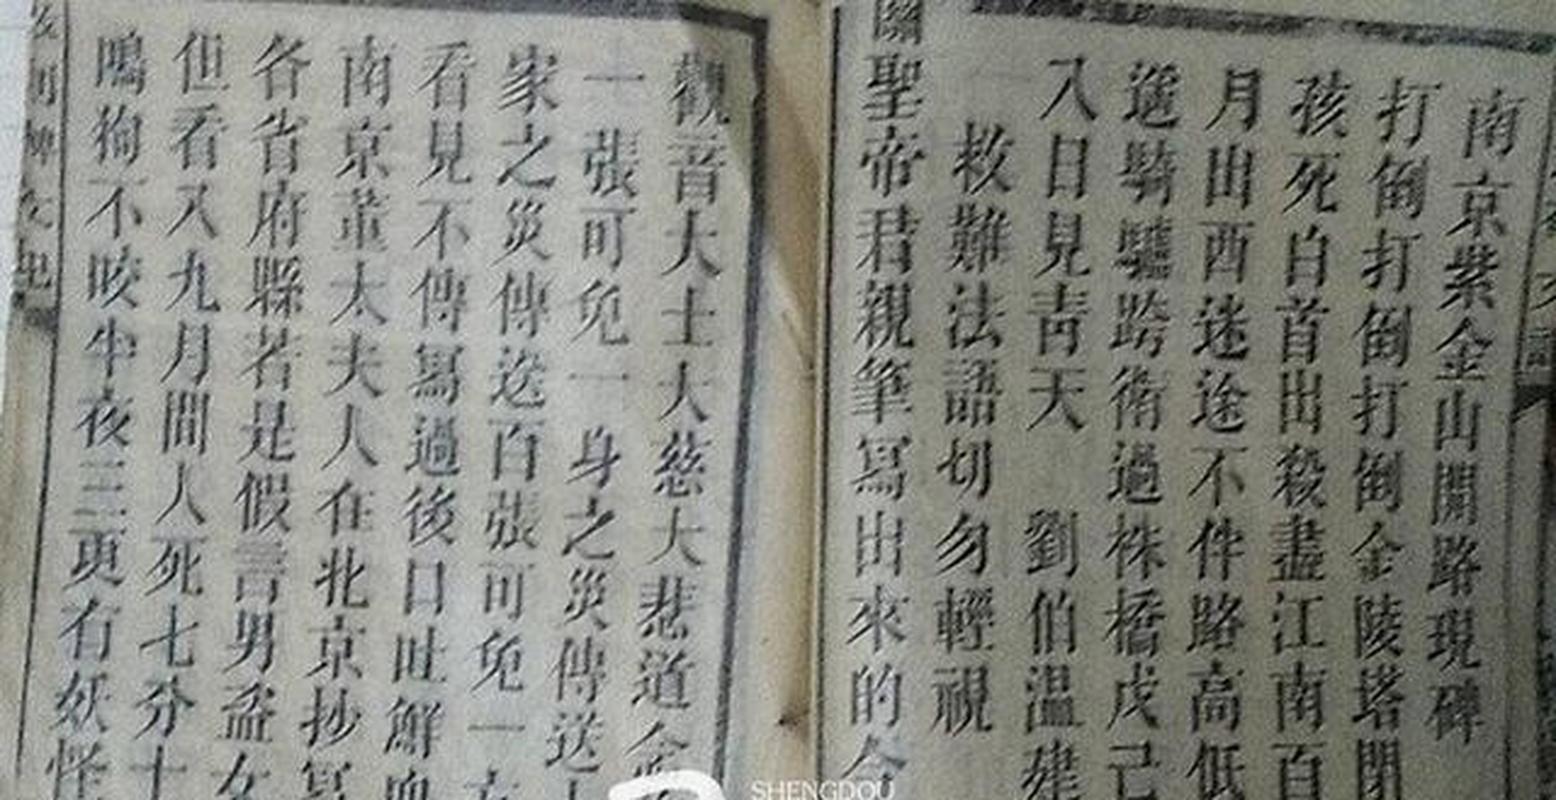 南京紫金山開路現碑
打倒打倒打倒金陵塔閉
孩死白首出殺盡江南百
月出西迷途不件路高低
選騎驢跨衛過株橋戊己
入日見青天 劉伯温建
救難法語切勿輕視
關聖帝君親筆寫出來的今
觀音大士大慈大悲道金
一張可免一身之災傳送
家之災傳送百張可免一方
看見不傳寫過後口吐鮮血
南京董太夫人在北京抄寫
各省府縣若是假言男盗女
但看八九月間人死七分十
鳴狗不咬半夜三更有妖怪
SHENGDOU